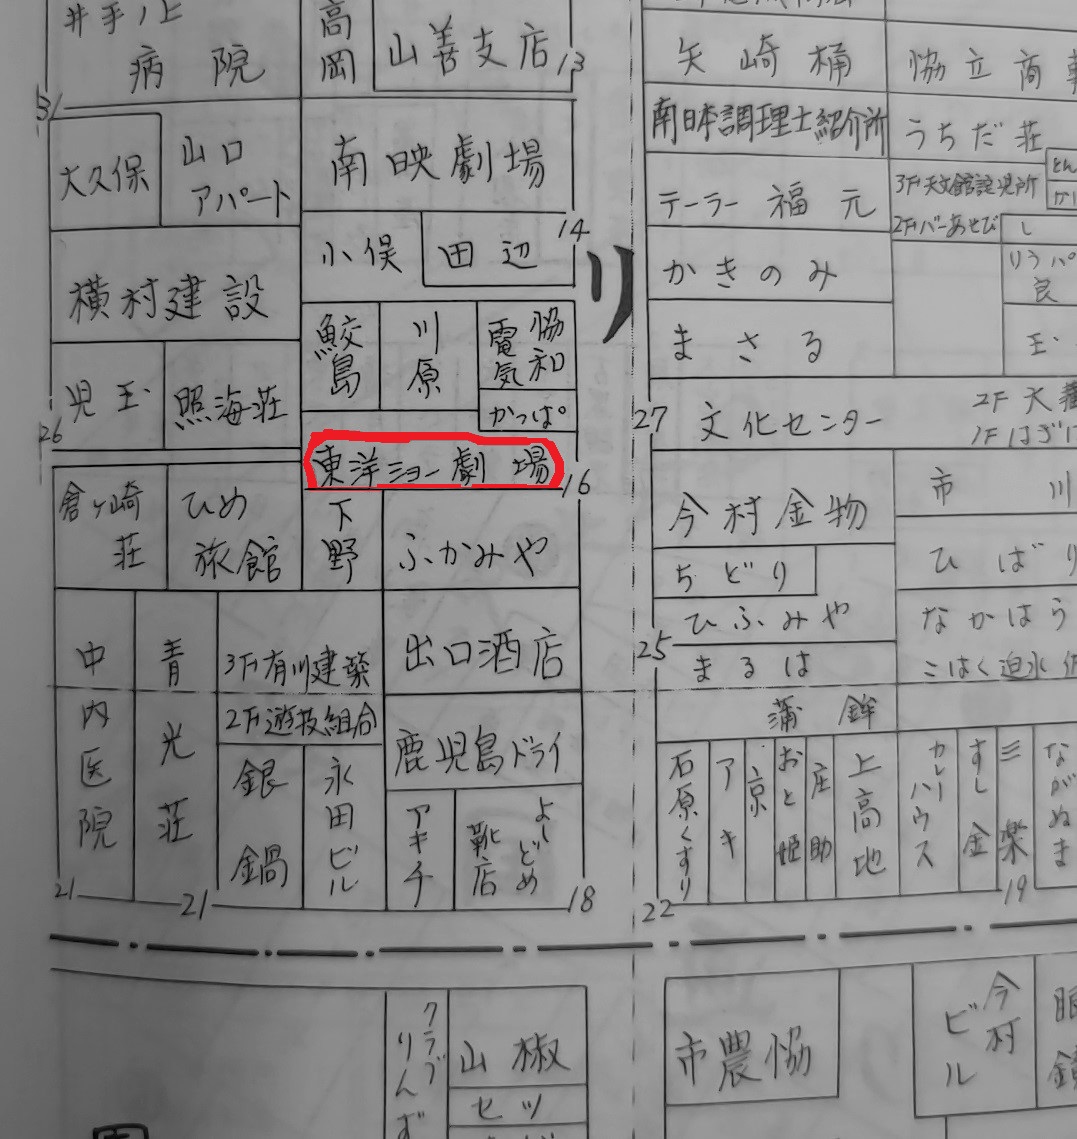 井手ノ上
病院
高岡
山善支店
13
31
大久保
山口
アパート
南映劇場
14
小俣
田辺
横村建設
鮫島
川原
協和
電気
かっぱ
児玉
照海荘
26
東洋ショー劇場
16
倉ヶ崎
荘
ひめ
旅館
下野
ふかみや
出口酒店
中内医院
青光荘
3F有川建築
2F遊技組合
銀鍋
永田ビル
鹿児島ドライ
アキチ
よしどめ
靴店
21
21
18
リ
矢崎桶
協立商事
南日本調理士紹介所
うちだ荘
テーラー福元
2Fバーあせび
とん
かきのみ
まさる
27
文化センター
今村金物
市川
ちどり
ひばり
ひふみや
なかはう
25
まるは
こはく迫水
蒲鉾
石原くすり
アキ
京
おと姫
庄助
上高地
カレーハウス
すし金
三楽
ながぬま
22
19
クラブ
りんず
山椒
セツ
市農協
今村
ビル
眼鏡